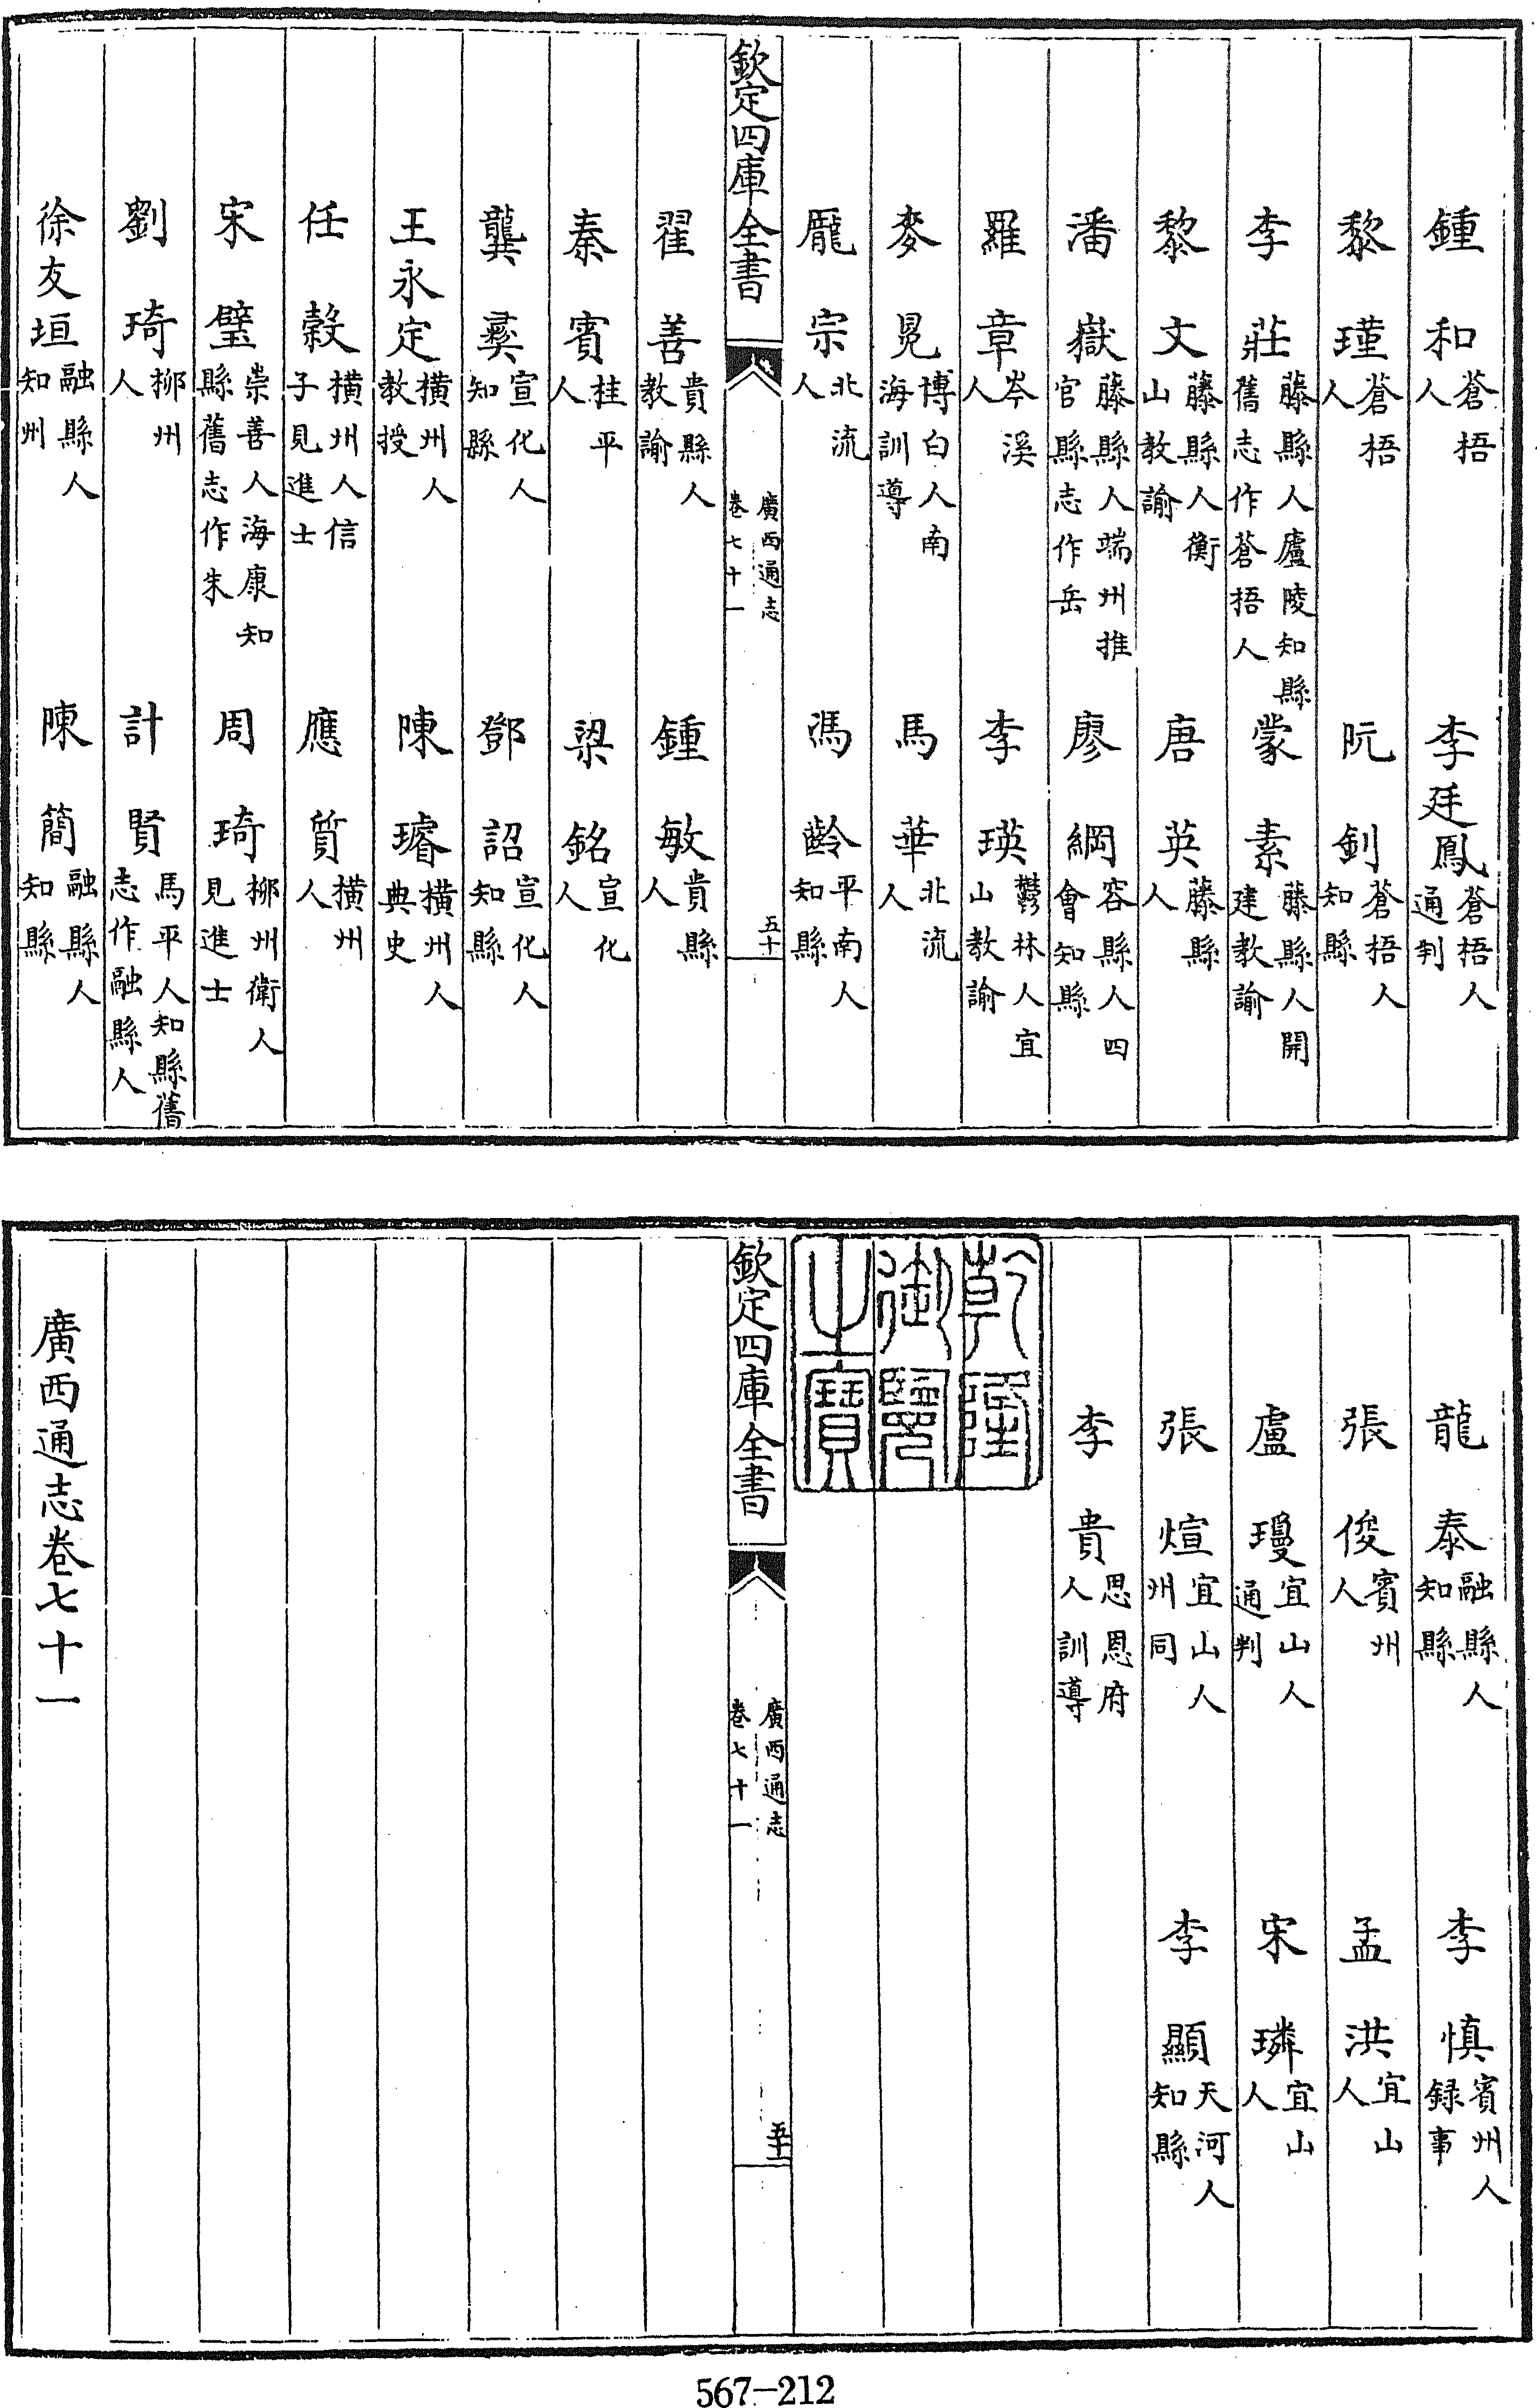 鍾和蒼梧人　李廷鳳蒼梧人通判
黎瑾蒼梧人　阮釗蒼梧人知縣
李莊藤縣人廬陵知縣舊志作蒼梧人　蒙素藤縣人開建教諭
黎文藤縣人衡山教諭　唐英藤縣人
潘嶽藤縣人端州推官縣志作岳　廖綱容縣人四會知縣
羅章岑溪人　李瑛鬱林人宜山教諭
麥晃博白人南海訓導　馬華北流人
龎宗北流人　馮齡平南人知縣
欽定四庫全書　廣西通志卷七十一　五十
翟善貴縣人教諭　鍾敏貴縣人
秦賓桂平人　梁銘宣化人
龔彞宣化人知縣　鄧詔宣化人知縣
王永定橫州人教授　陳璿橫州人典史
任榖橫州人信子見進士　應質橫州人
宋璧崇善人海康知縣舊志作朱　周琦柳州衛人見進士
劉琦柳州人　計賢馬平人知縣舊志作融縣人
徐友垣融縣人知州　陳簡融縣人知縣
龍泰融縣人知縣　李慎賓州人録事
張俊賓州人　孟洪宜山人
盧瓊宜山人通判　宋璘宜山人
張煊宜山人州同　李顯天河人知縣
李貴思恩府人訓導
乾隆御覽之寶
欽定四庫全書　廣西通志卷七十一　五十一
廣西通志卷七十一
567-212